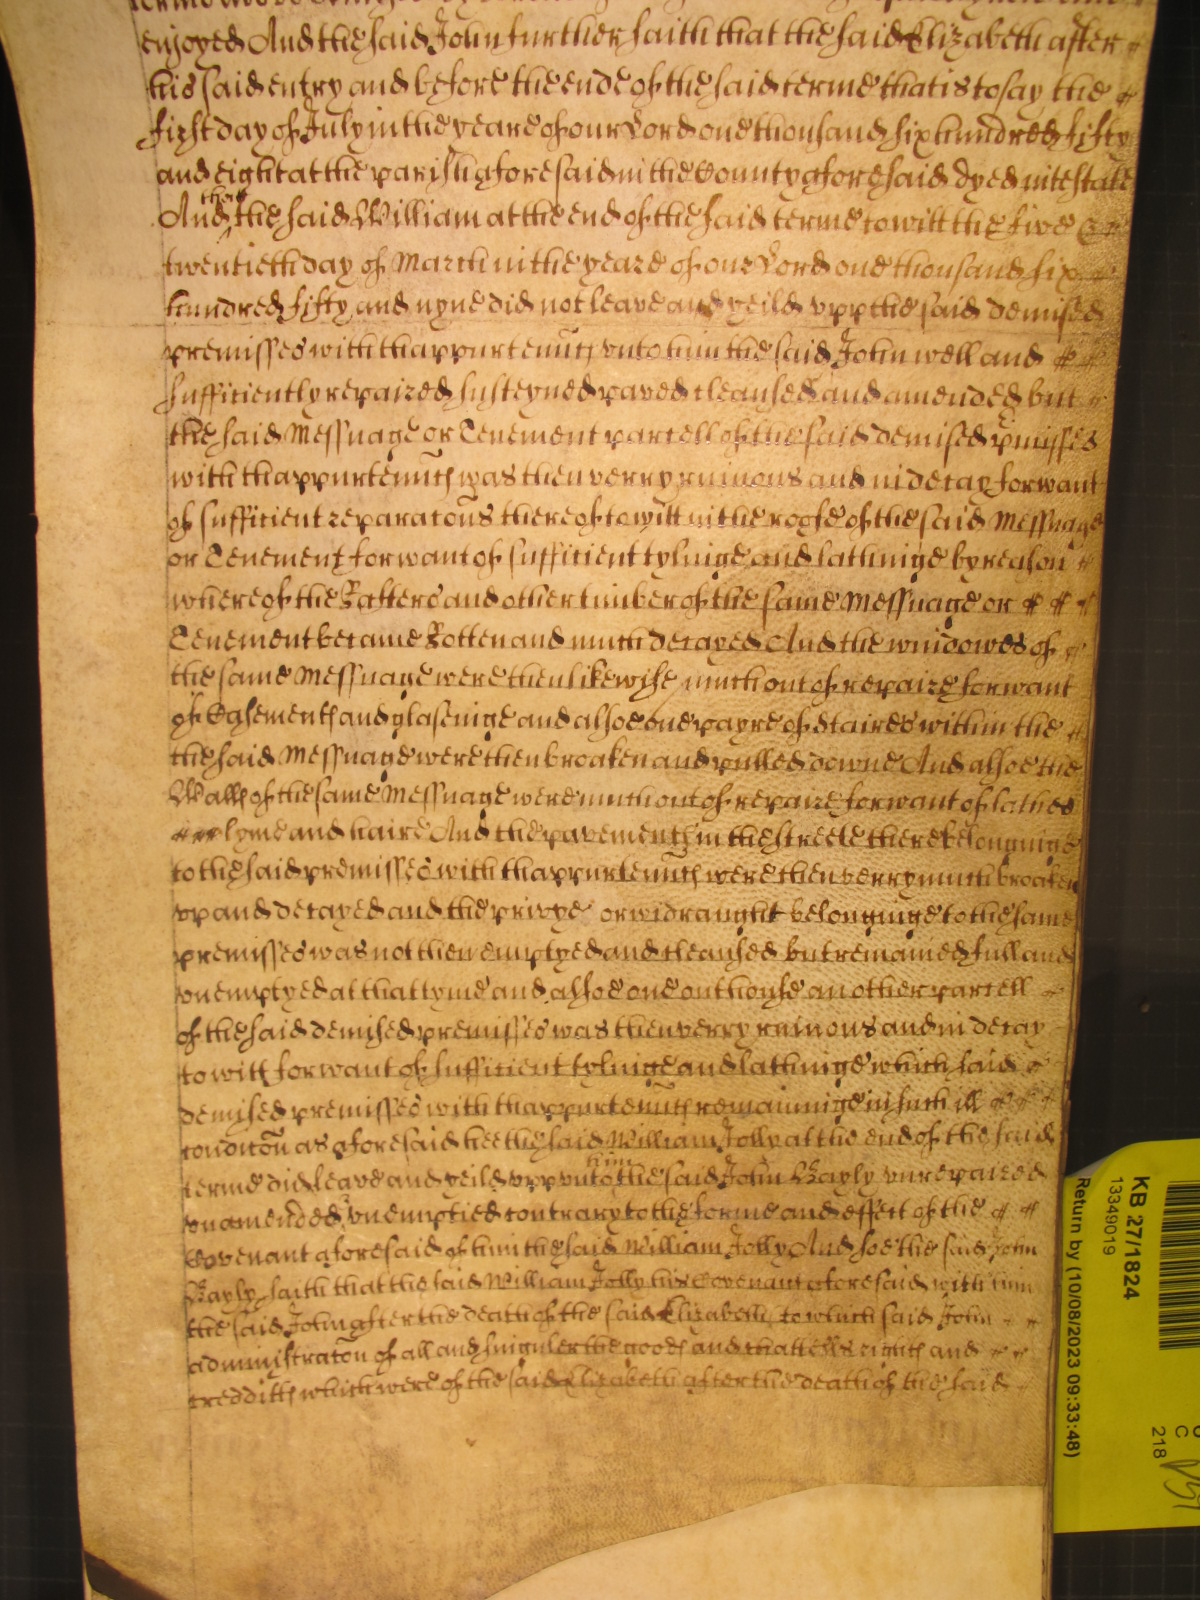 enjoyed And the said John further saith that the said Elizabeth after
his said entry and before the ende of the said terme that is to say the
first day of July in the yeare of our Lord one thousand six hundred fifty
and eight at the parish aforesaid in the County aforesaid dyed intestate
And that the said William at the end of the said terme to witt the five &
twentieth day of March in the yeare of our Lord one thousand six
hundred fifty and nyne did not leave and yeild upp the said demised
premisses with thappurtenñts unto him the said John well and
sufficiently repaired susteyned paved cleansed and amended but
the said Messuage or Tenement parcell of the said demised pmisses
with thappurtenñts was then verry ruinous and in decay for want
of sufficient reparatons thereof to witt in the roofe of the said Messuage
or Tenement for want of sufficient tylinge and lathinge by reason
whereof the Rafters and other timber of the same Messuage or
Tenement became Rotten and much decayed And the windowes of
the same Messuage were then likewise much out of repaire for want
of Casements and glaseinge and alsoe one payre of Staires within the
the said Messuage were then broaken and pulled downe And alsoe the
Walls of the same Messuage were much out of repaire for want of lathes
lyme and haire And the pavements in the streete there belonginge
to the said premisses with thappurtenñts were then verry much broaken
up and decayed and the privye or widraught belonginge to the same
premisses was not then emptyed and cleansed but remained full and
unemptyed at that tyme and alsoe one outhouse another parcell
of the said demised premisses was then verry ruinous and in decay
to witt for want of sufficient tylinge and lathinge which said
demised premisses with thappurtenñts remaininge in such ill
conditon as aforesaid hee the said William Jolly at the end of the said
terme did leave and yeild upp unto him the said John Bayly unrepaired
unamended & unemptied contrary to the forme and effect of the
Covenant aforesaid of him the said William Jolly And soe the said John
Bayly saith that the said William Jolly his Covenant aforesaid with him
the said John after the death of the said Elizabeth to which said John
administraton of all and singuler the goods and chattells rights and
credditts which were of the said Elizabeth after the death of the said
KB 27/1824
13349019
Return by (10/08/2023 09:33:48)
218